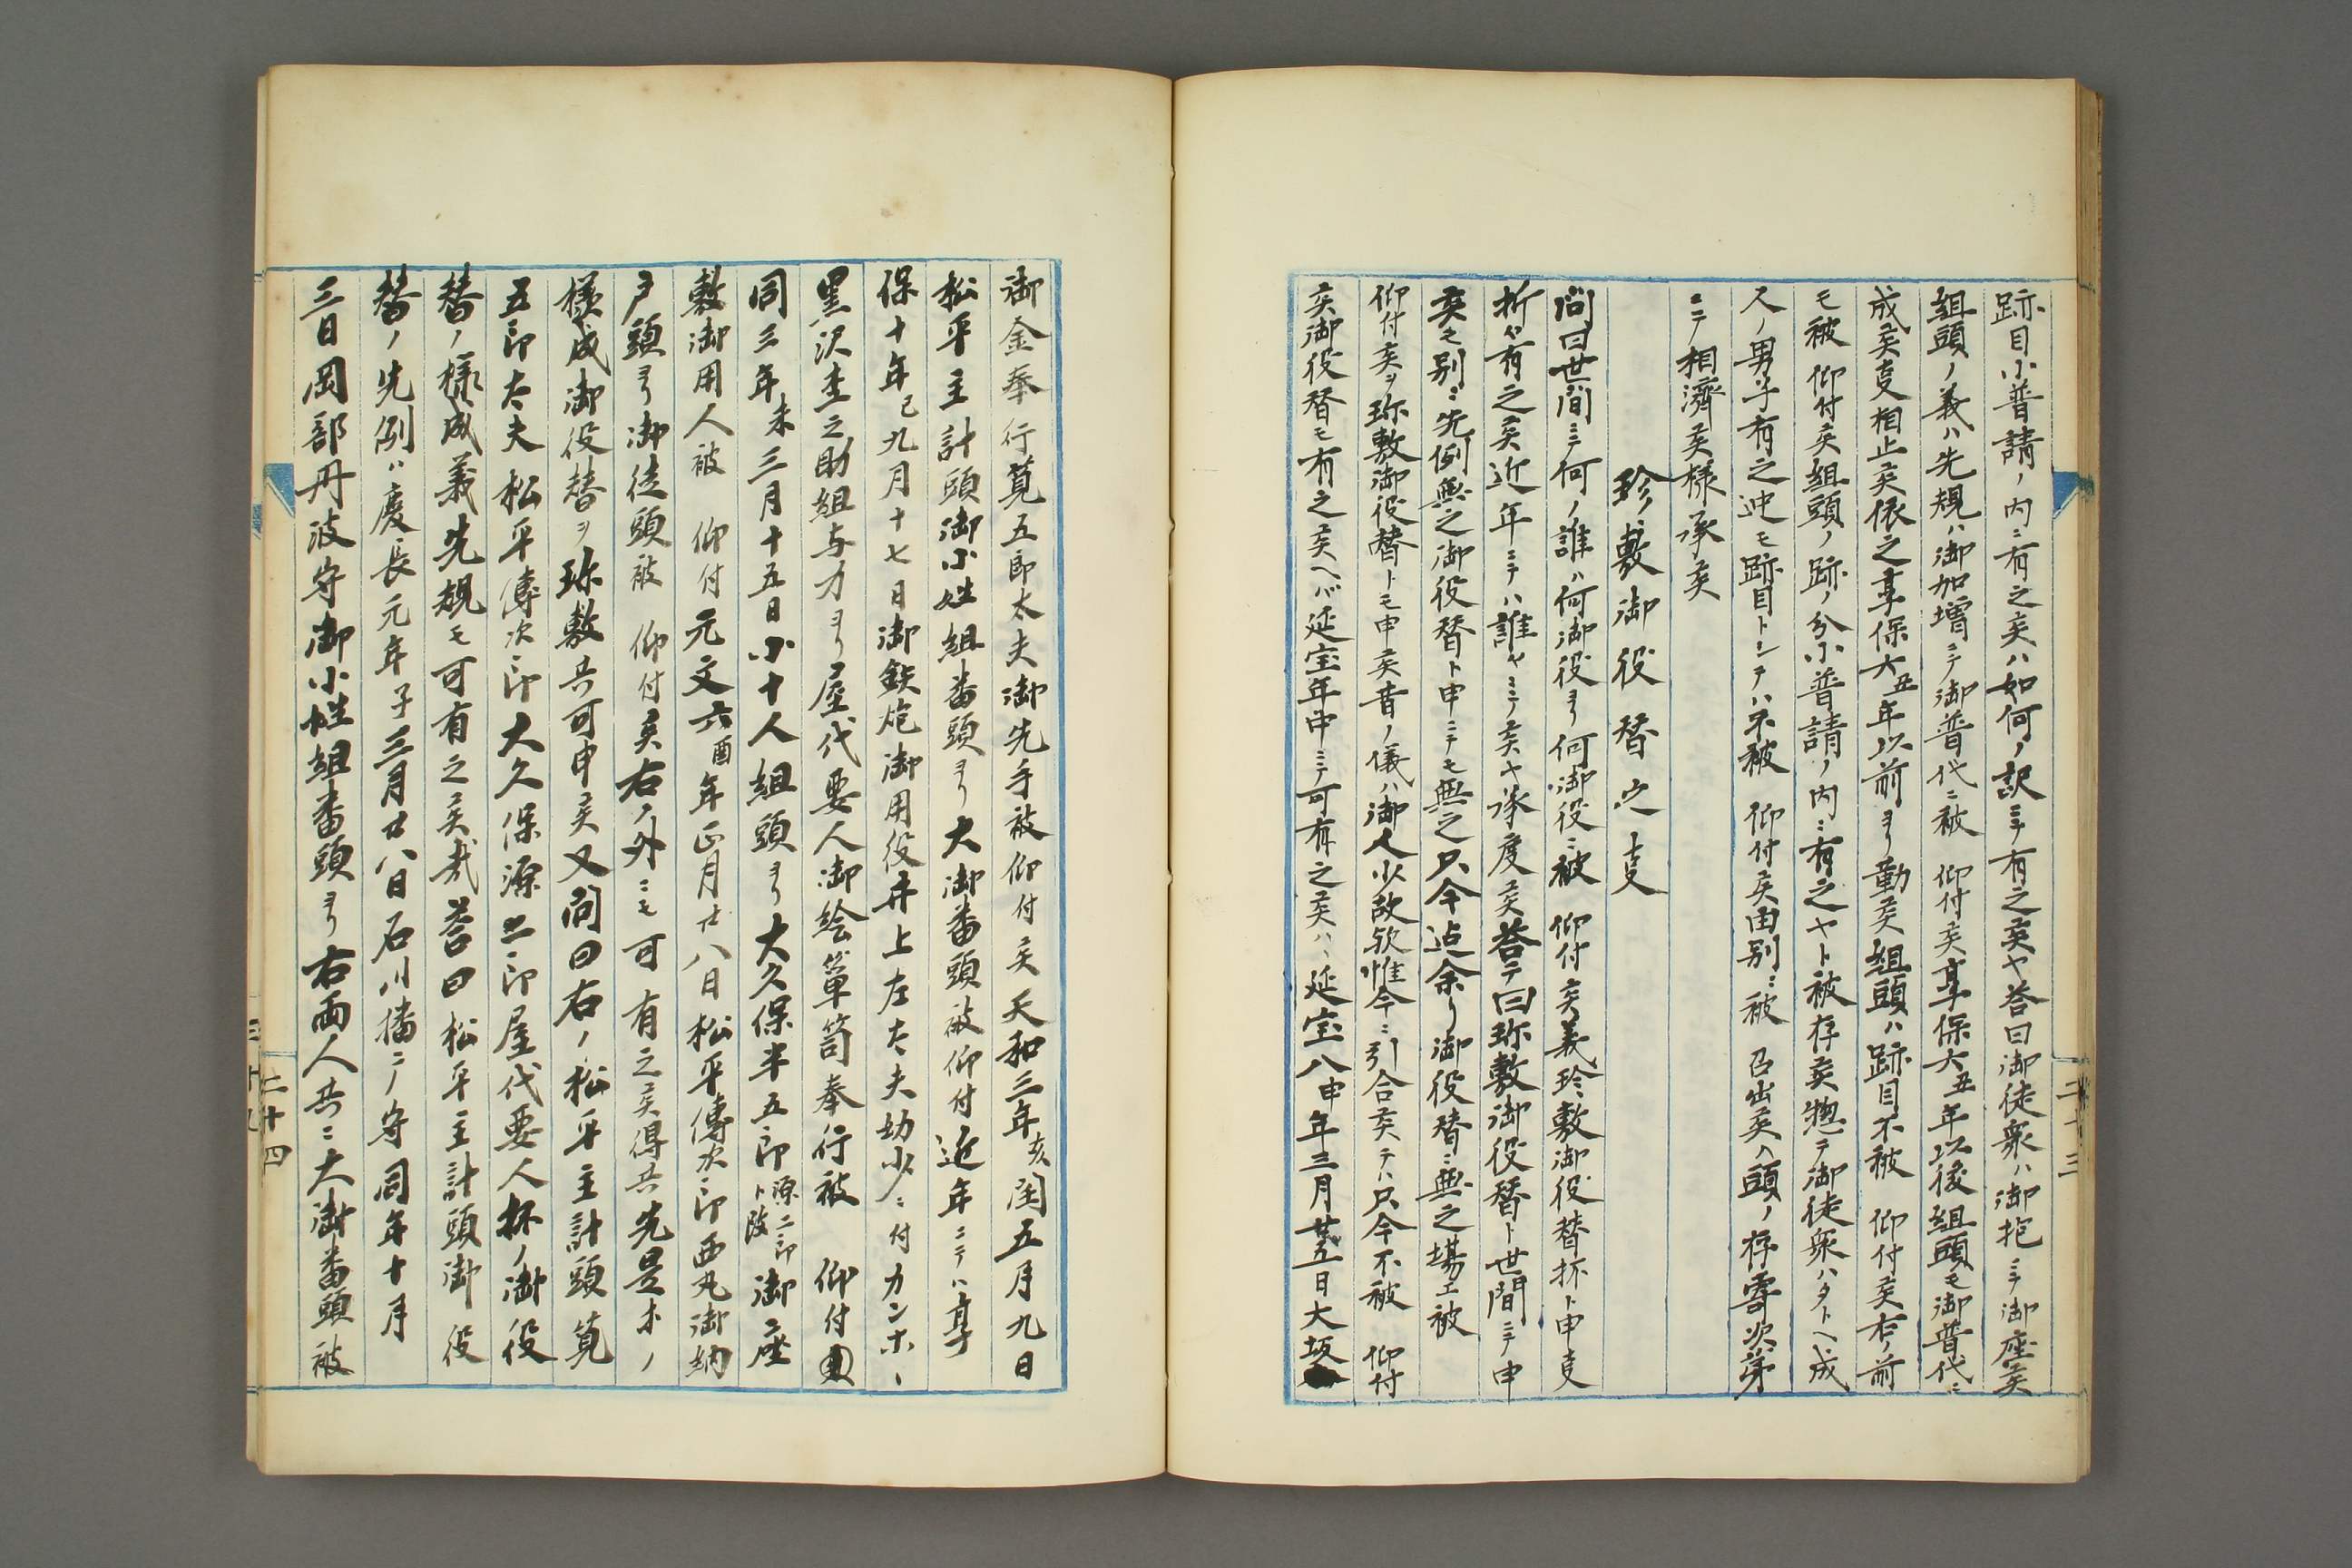 跡目小普請ノ内ニ有之候ハ如何ノ訳ニテ有之候ヤ答曰御徒衆ハ御抱ニテ御座候
組頭ノ義ハ先規ハ御加増ニテ御普代ニ被 仰付候享保六丑年以後組頭モ御普代ニ
成候事相止候依之享保六丑年以前ヨリ勤候組頭ハ跡目不被 仰付候右ノ前
モ被 仰付候組頭ノ跡ノ分小普請ノ内ニ有之ヤト被存候惣テ御徒衆ハタトヘ成
人ノ男子有之迚モ跡目トシテハ不被 仰付候由別ニ被 召出候ヘ頭ノ存寄次第
ニテ相濟候様承候
珍敷御役替之事
問曰世間ニテ何ノ誰ハ何御役ヨリ何御役ニ被 仰付候義珍敷御役替抔ト申事
折々有之候近年ニテハ誰ヤミニテ候ヤ承度候答テ曰珍敷御役替ト世間ニテ申
候モ別ニ先例無之御役替ト申ニテモ無之只今迠余リ御役替ニ無之場エ被
仰付候ヲ珍敷御役替トモ申候昔ノ儀ハ御人少故欤惟今ニ引合候テハ只今不被 仰付
候御役替モ有之候ヘバ延宝年中ニテ可有之候ハヽ延宝八申年三月廿五日大坂
御金奉行筧五郎太夫御先手被仰付候天和三年亥閏五月九日
松平主計頭御小姓組番頭ヨリ大御番頭被仰付近年ニテハ享
保十年巳九月十七日御鉄炮御用役井上左太夫幼少ニ付カンホヽ
黒沢杢之助組与力ヨリ屋代要人御絵箪笥奉行被 仰付
同三年未三月十五日小十人組頭ヨリ大久保半五郎源二郎ト改御座
敷御用人被 仰付元文六酉年正月廿八日松平傳次郎西丸御納
戸頭ヨリ御徒頭被 仰付候右ノ外ニモ可有之候得共先是ホノ
様成御役替ヲ珍敷共可申候又問曰右ノ松平主計頭筧
五郎太夫松平傳次郎大久保源二郎屋代要人抔ノ御役
替ノ様成義先規モ可有之候哉答曰松平主計頭御役
替ノ先例ハ慶長元年子三月廿八日石川播ニノ守同年十月
三日岡部丹波守御小姓組番頭ヨリ右両人共ニ大御番頭被
二十四